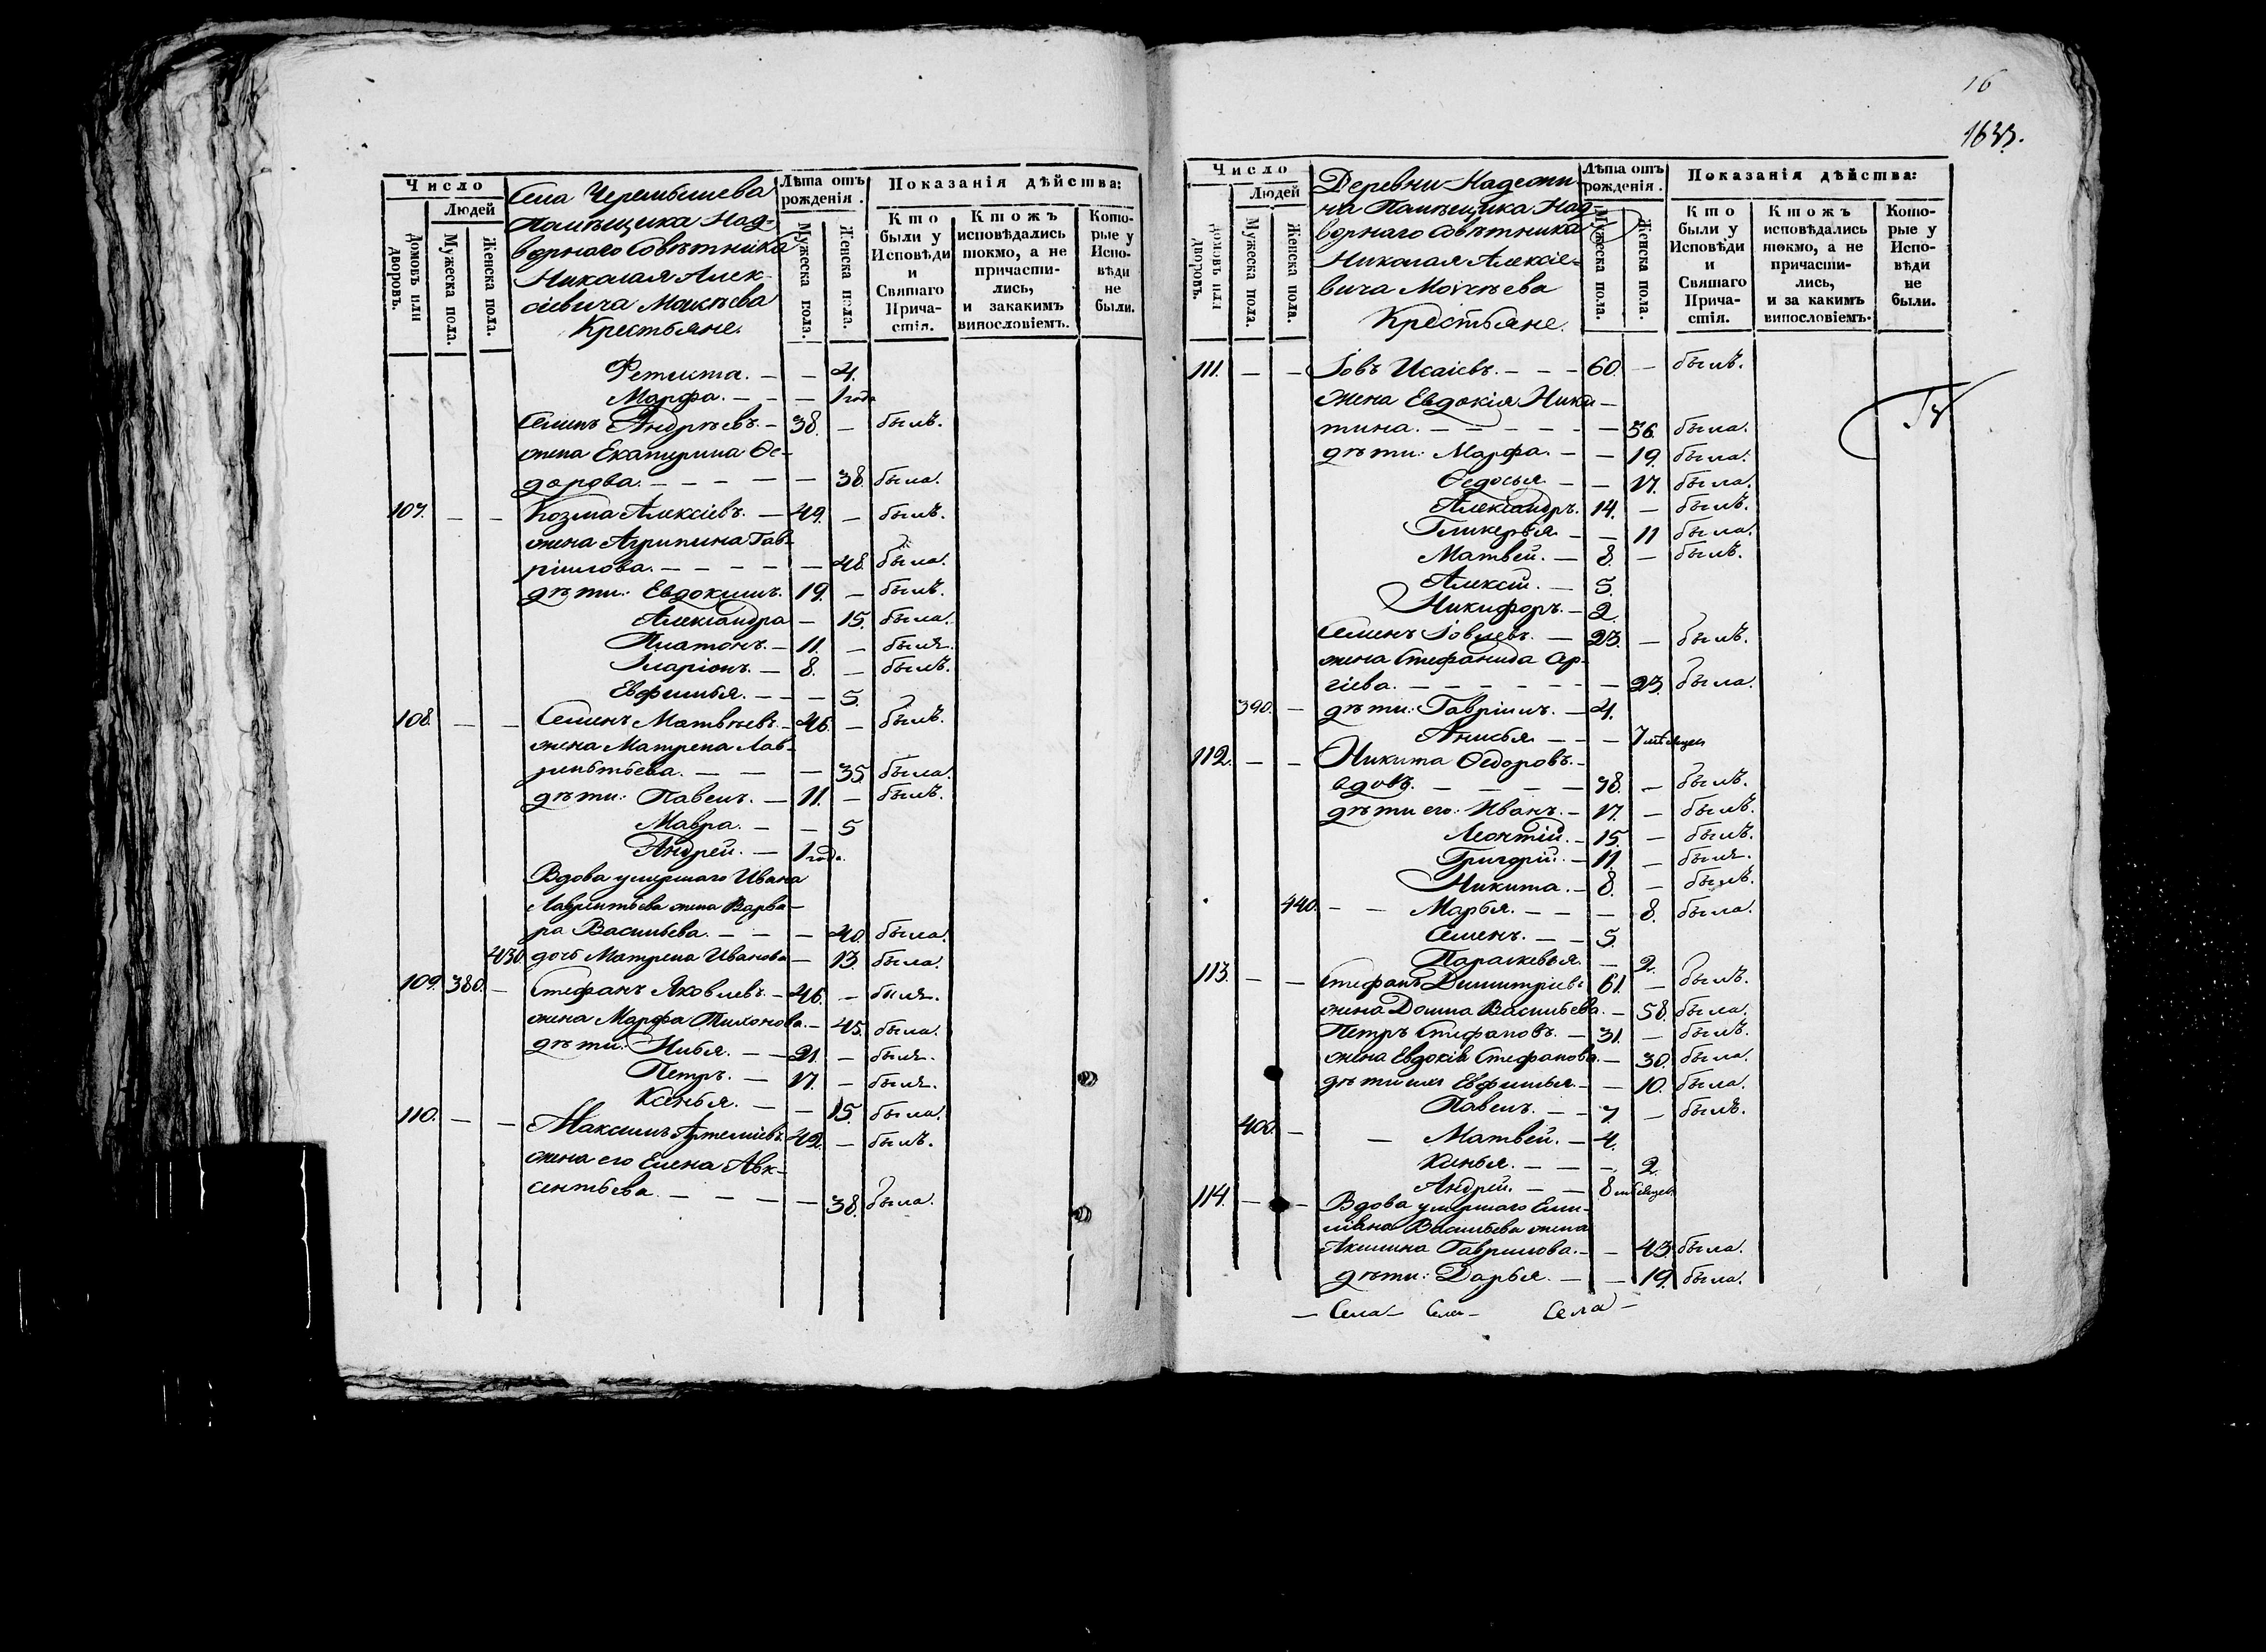 Число
Людей
Домовъ или дворовъ.
Мужеска пола.
Женска пола.
Села Черемышева
Помѣщика Над-
ворнаго Совѣтника
Николая Алек-
сіевича
Крестьяне.
Лѣта отъ рожденія.
Мужеска пола.
Женска пола.
Показанія дѣйства:
Кто были у Исповѣди и Святаго Прича-стія.
Ктожъ исповѣдались токмо, а не причасти-лись, и закакимъ винословіемъ.
Кото-рые у Испо-вѣди не были.
Фетинта. — — 4.
Марфа. — — 1 года
Семенъ Андрѣевъ. — 38. — былъ.
жена Екатерина Ѳе-
дорова. — — — — — 38. была.
107. — — Козма Алексіевъ. — 49. — былъ.
жена Агрипина Гав-
ріилова. — — — — — 48. была.
дѣти: Евдокимъ. 19. — былъ.
Александра — 15. была.
Платонъ. — 11. — былъ.
Іларіонъ. — 8. — былъ.
Евфимья. — — — 5.
108. — — Семенъ Матвѣевъ. — 46. — былъ.
жена Матрена Лав-
рентьева. — — — 35. была.
дѣти: Павелъ. — 11. — былъ.
Мавра. — — 5
Андрей. — 1 года.
Вдова умершаго Ивана
Лаврентьева жена Варва-
ра Васильева. — — — 40. была.
430. дочь Матрена Иванова — 13. была.
109. 380. — Стефанъ Яковлевъ. — 46. — былъ.
жена Марфа Тихонова. — 45. была.
дѣти: Илья. — — 21. — былъ.
Петръ. — 17. — былъ.
Ксенья. — — 15. была.
110. — — Максимъ Артеміевъ 42. — былъ.
жена его Елена Авк-
сентьева. — — — — 38. была.
16
1633.
Число
Людей
Домовъ или дворовъ.
Мужеска пола.
Женска пола.
Деревни
Помѣщика Над-
ворнаго Совѣтника
Николая Алексіе-
вича
Крестьяне.
Лѣта отъ рожденія.
Мужеска пола.
Женска пола.
Показанія дѣйства:
Кто были у Исповѣди и Святаго Прича-стія.
Ктожъ исповѣдались токмо, а не причасти-лись, и за какимъ винословіемъ.
Кото-рые у Испо-вѣди не были.
111. — — Іовъ Исаіевъ. — — — 60. — былъ.
жена Евдокія Ники-
тина. — — — — — — 56. была.
дѣти: Марфа. — — 19. была.
Ѳедосья. — — 17. была.
Александръ. 14. — былъ.
Гликерья. — — 11 была.
Матвей. — 8. — былъ.
Алексій. — 5.
Никифоръ. — 2.
Семенъ Іовлевъ. — 23. — былъ.
жена Стефанида Сер-
гіева. — — — — — — 23. была.
390. — дѣти: Гавріилъ. — 4.
Анисья. — — — 7 мѣсяцев
112. — — Никита Ѳедоровъ. —
вдовъ. — — — — 38. — былъ.
дѣти его: Иванъ. — 17. — былъ.
Леонтій. — 15. — былъ.
Григорій. — 11. — былъ.
Никита. — 8. — былъ.
440. — — Марья. — — — 8. была.
Семенъ. — — 5.
Параскевья. — 2.
113. — — Стефанъ Димитріевъ 61. — былъ.
жена Домна Васильева. — 58. была.
Петръ Стефановъ. — 31. — былъ.
жена Евдокія Стефанова. — 30. была.
дѣти ихъ Евфимья. — — 10. была.
Павелъ. — — 7. — былъ.
400. — — Матвей. — 4.
Ксенья. — — — 2.
Андрей. — — 8 мѣсяцев
114. — — Вдова умершаго Еме-
ліана Васильева жена
Акилина Гаврилова. — — 43. была.
дѣти: Дарья. — — 19. была.
— Села — Села — Села —